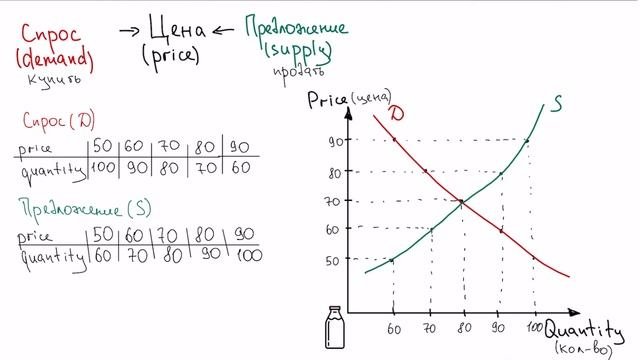 Спрос → Цена ← Предложение
(demand) (price) (supply)
купить продать
Спрос (D)
price 50 60 70 80 90
quantity 100 90 80 70 60
Предложение (S)
price 50 60 70 80 90
quantity 60 70 80 90 100
Price (цена)
D S
90
80
70
60
50
60 70 80 90 100 Quantity
(кол-во)